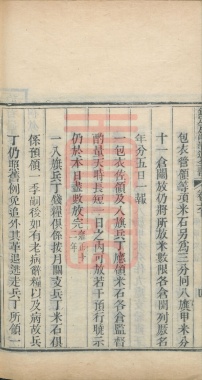 包衣管領等項米石另為三分同八旗甲米分
十一倉關放仍將所放米數限各倉開列厯名
年分五日一報
一包衣佐領及八旗兵丁應領米石各倉監督
酌量天時長短一日之內可放若干預行曉示
仍於本日盡數放完
一八旗兵丁錢糧俱係按月關支兵丁米石俱
係預領一季嗣後如有老病當糧以及病故兵
丁仍照舊例免追外其革退逃走兵丁所領一